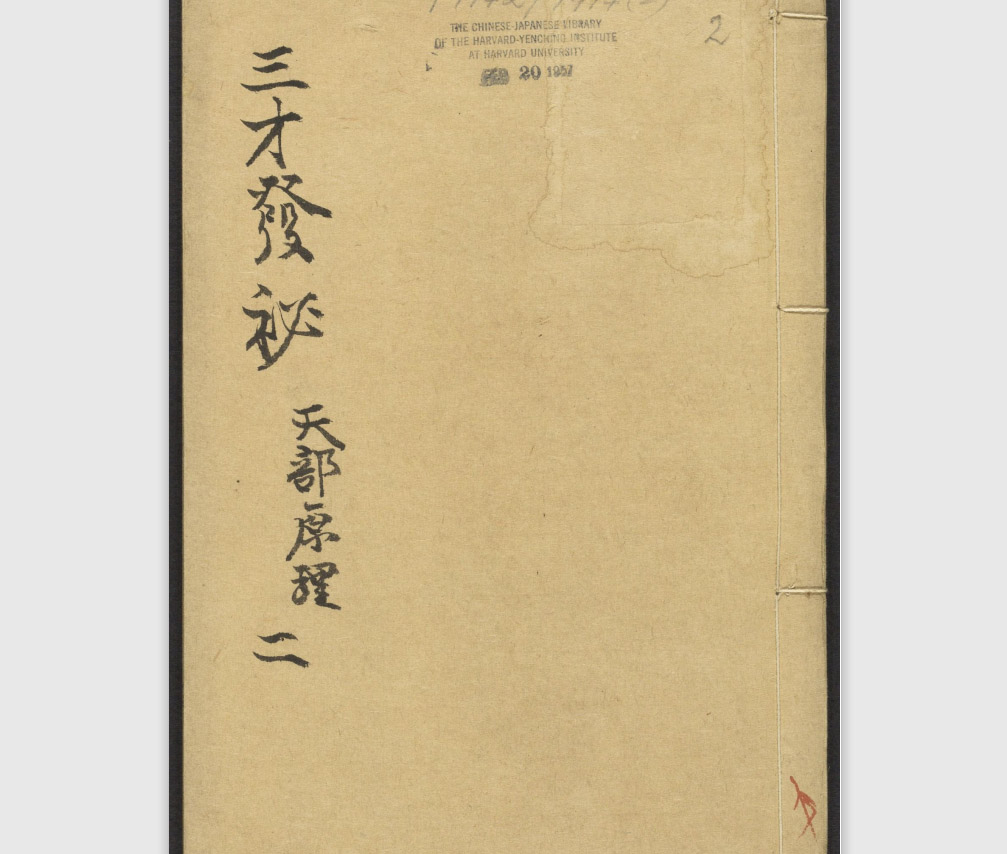 THE CHINESE-JAPANESE LIBRARY
OF THE HARVARD-YENCHING INSTITUTE
AT HARVARD UNIVERSITY
FEB 20 1957
2
三才發祕
天部原理
二